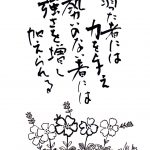 弱た者には
力を与え
勢いのない者には
強さを増し
加えられる